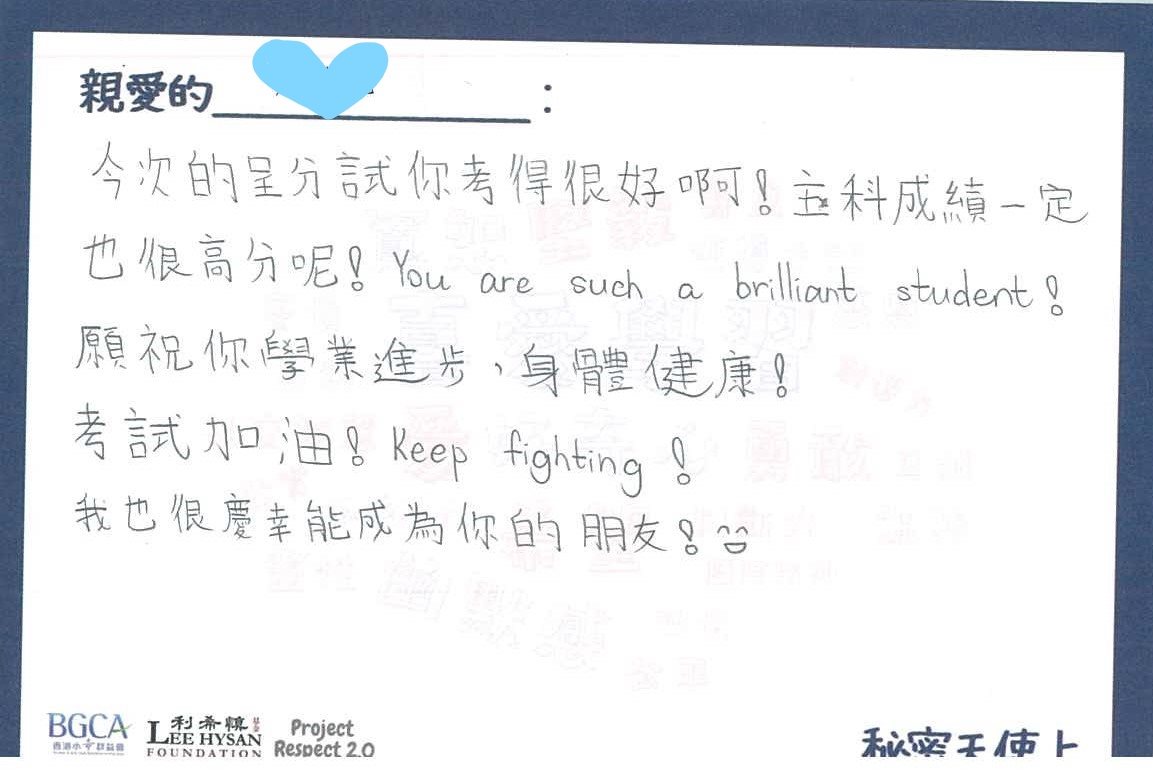 親愛的 :
今次的呈分試你考得很好啊！主科成績一定
也很高分呢！You are such a brilliant student！
願祝你學業進步、身體健康！
考試加油！Keep fighting！
我也很慶幸能成為你的朋友！
BGCA
香港小童群益會
利希慎基金
LEE HYSAN
FOUNDATION
Project
Respect 2.0
秘密天使上